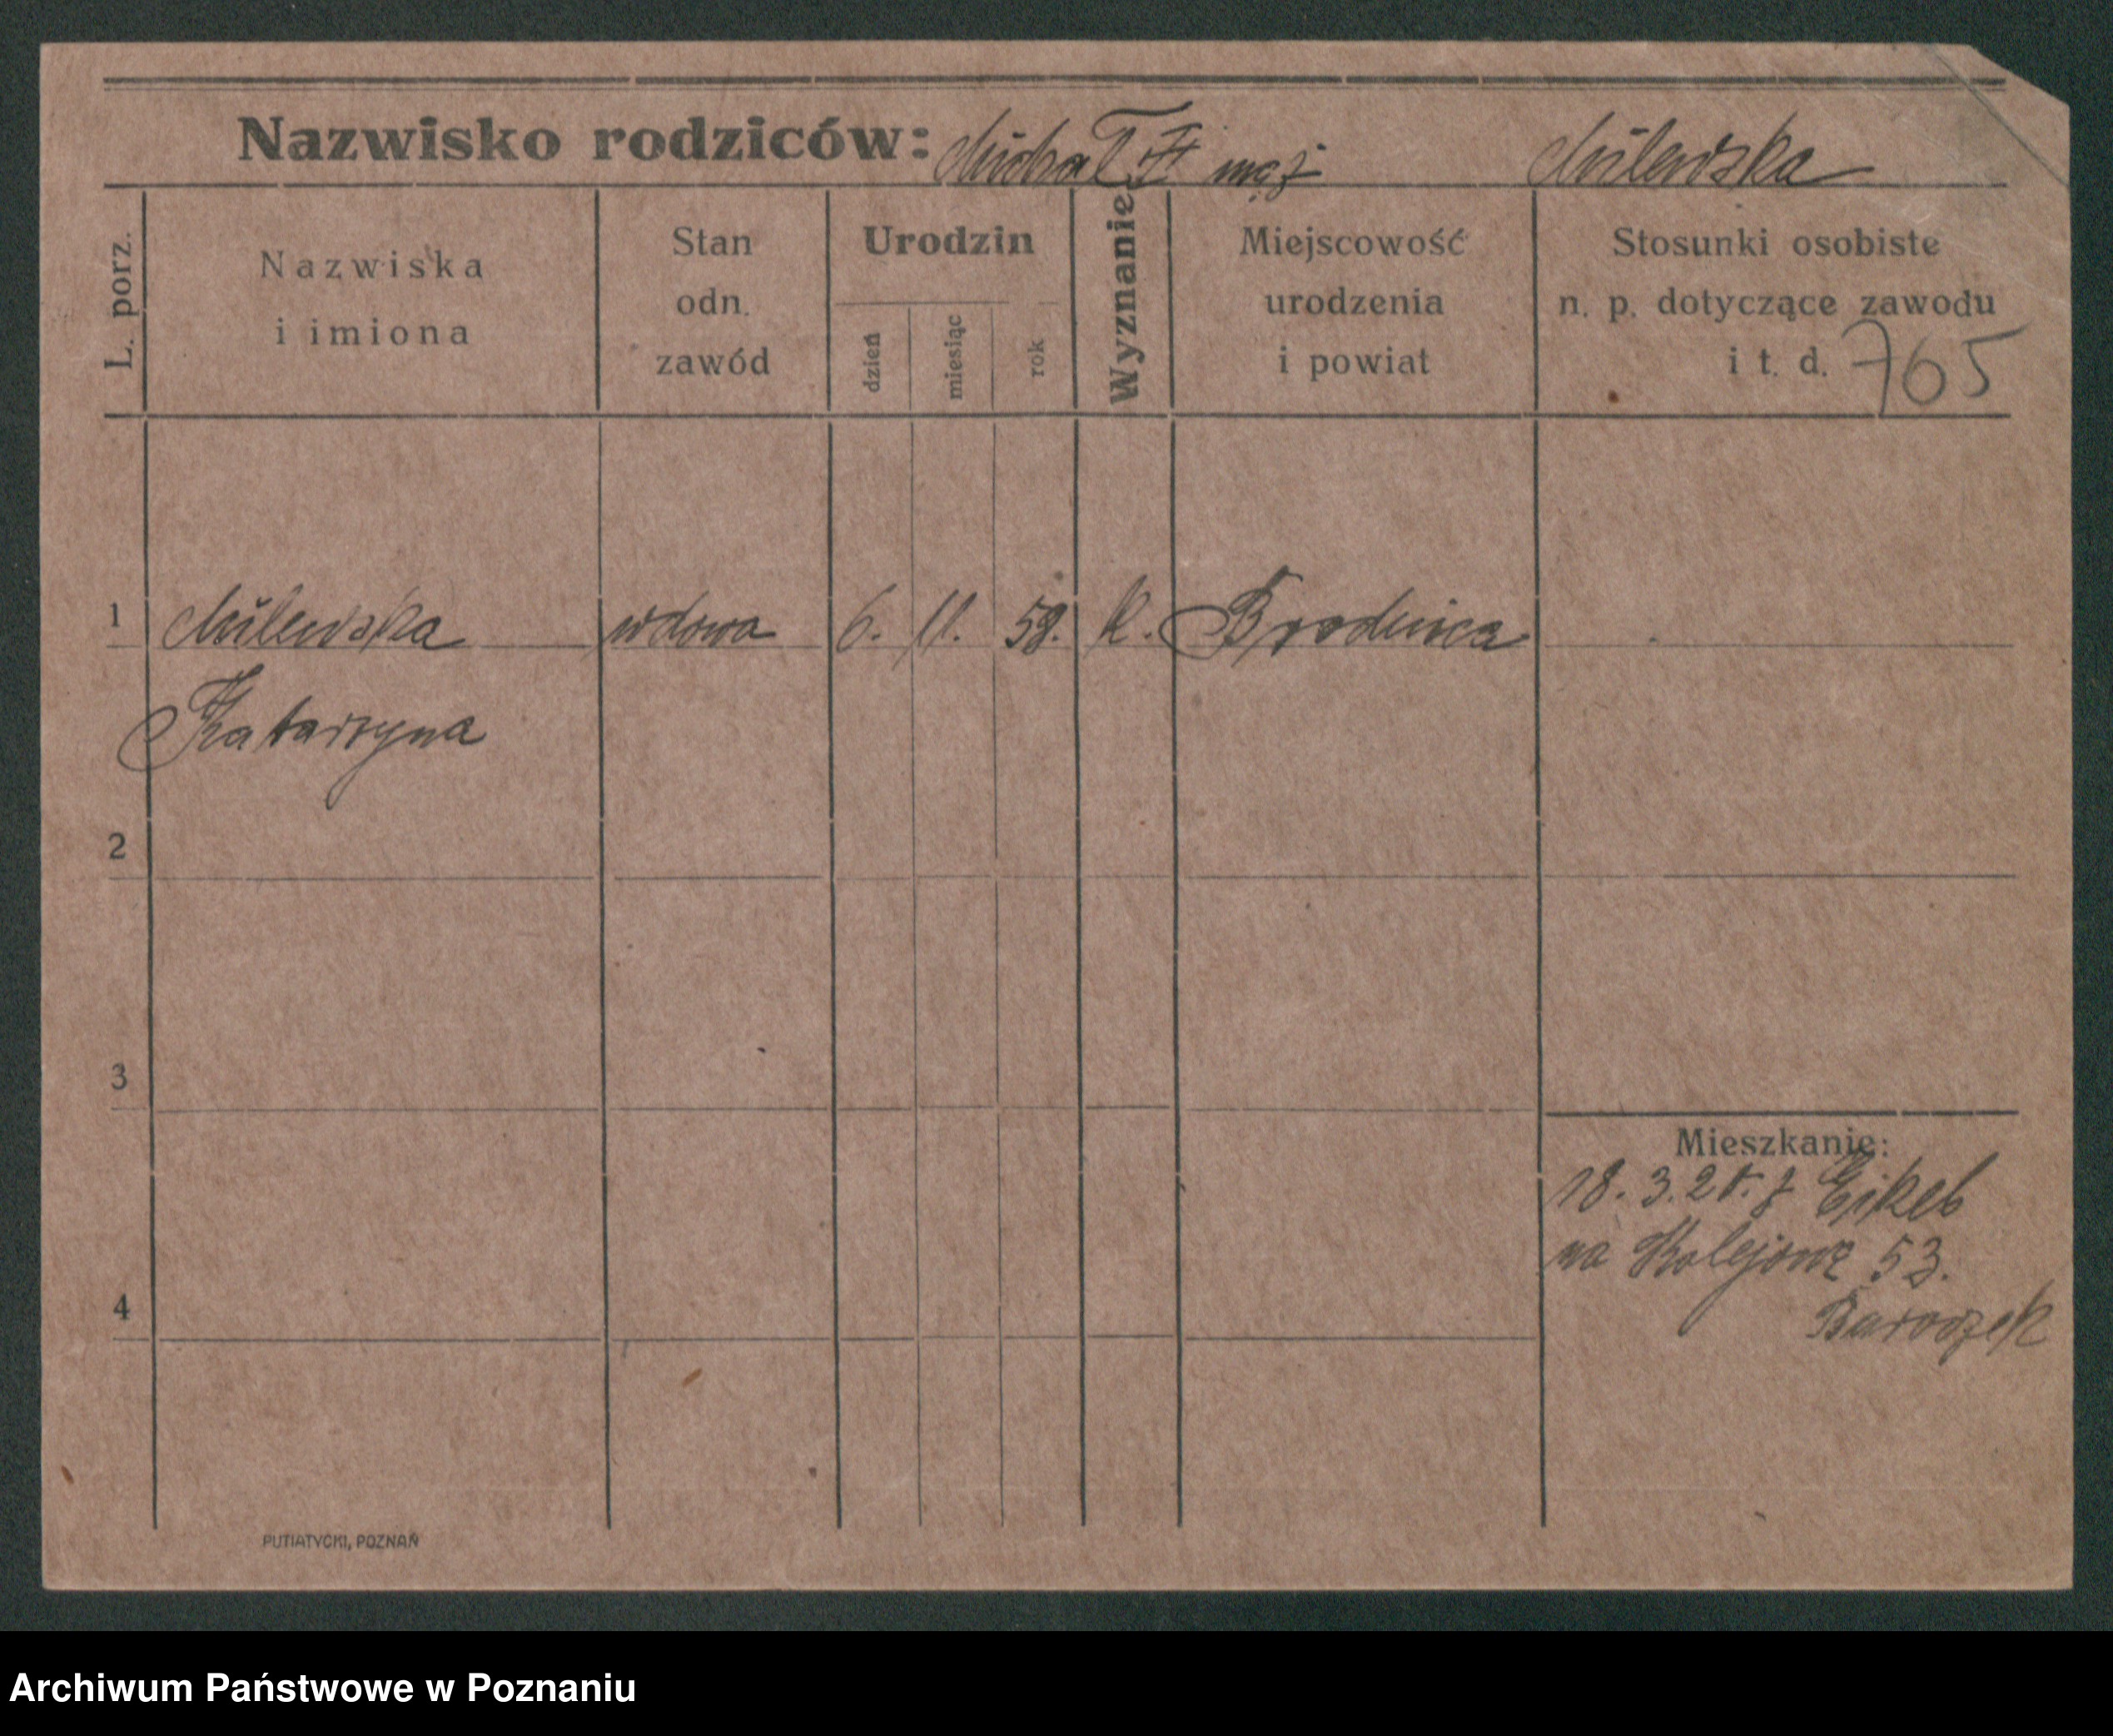 Nazwisko rodziców: Michał II mąż Milewska
L. porz.
Nazwiska
i imiona
Stan
odn.
zawód
Urodzin
dzień
miesiąc
rok
Wyznanie
Miejscowość
urodzenia
i powiat
Stosunki osobiste
n. p. dotyczące zawodu
i t. d. 765
1 Milewska wdowa 6. 11. 58. k. Brodnica
Katarzyna
2
3
Mieszkanie:
18. 3. 2 z
na Kolejową 53.
4
PUTIATYCKI, POZNAŃ
Archiwum Państwowe w Poznaniu